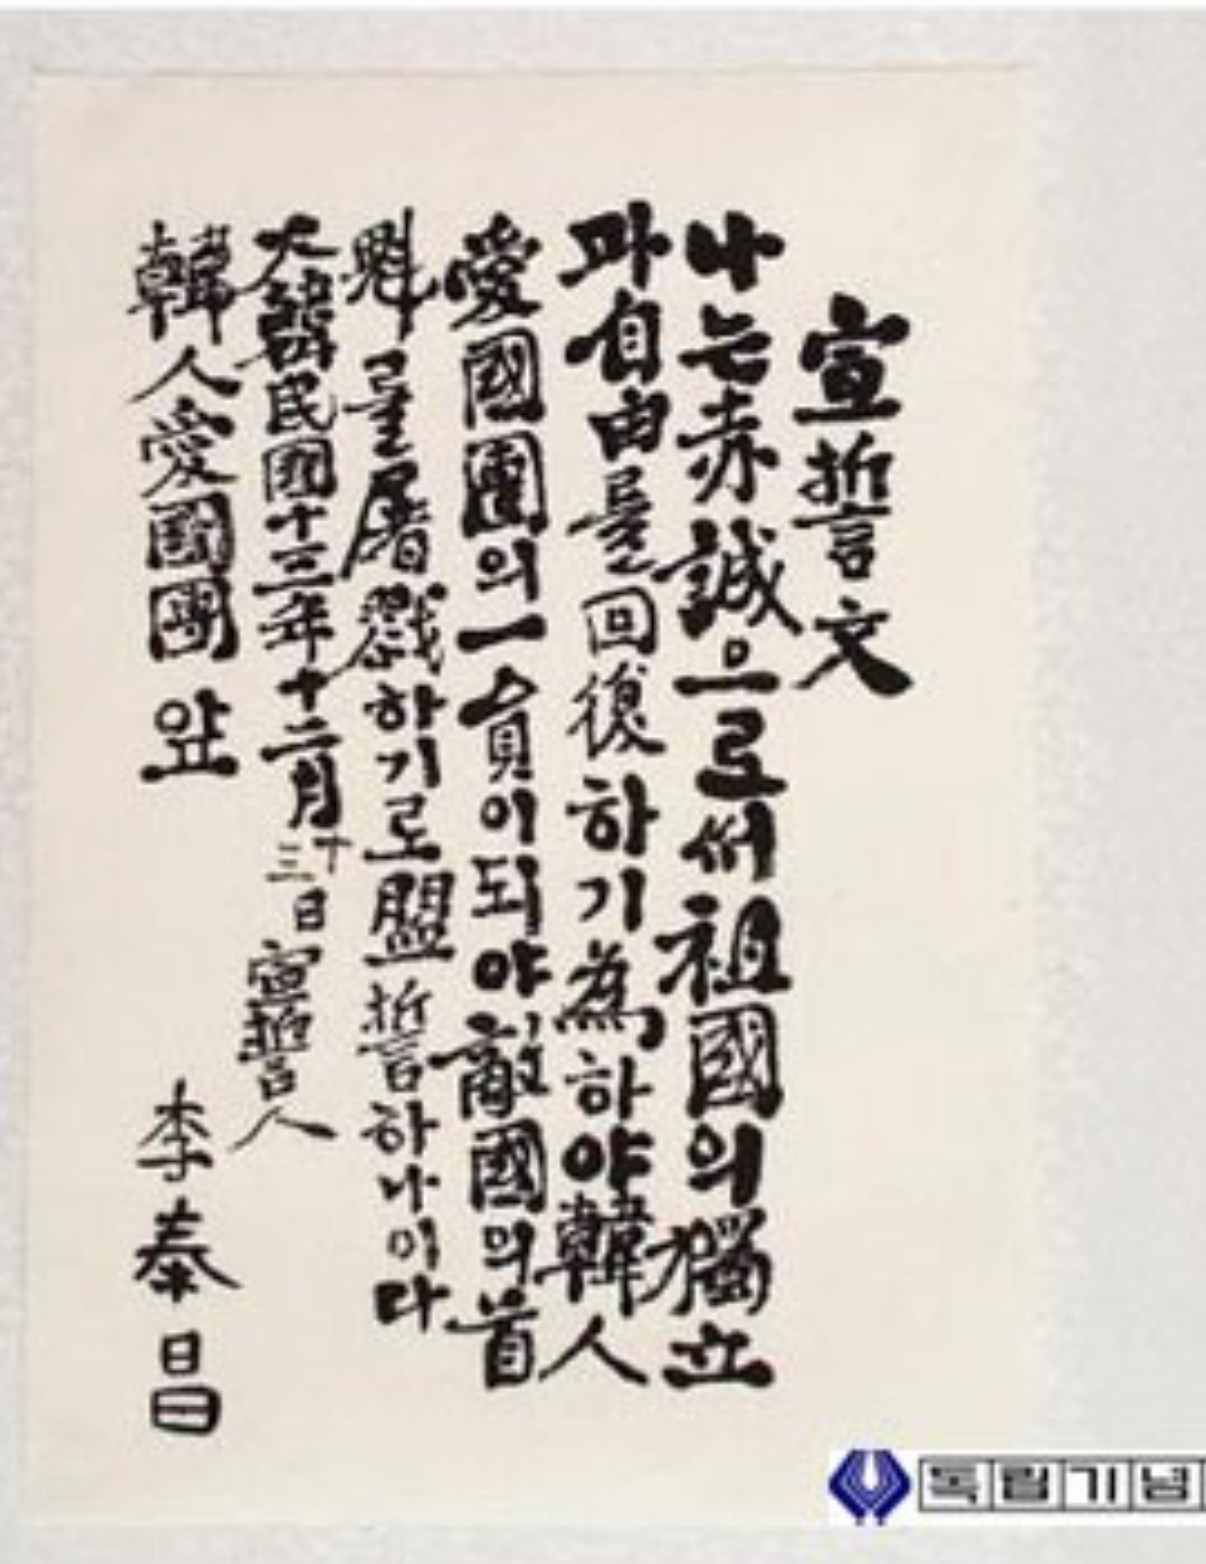 宣誓文
나는赤誠으로써祖國의獨立
과自由를回復하기爲하야韓人
愛國團의一員이되야敵國의首
魁를屠戮하기로盟誓하나이다
大韓民國十三年十二月十三日 宣誓人
李奉昌
韓人愛國團 앞
독립기념